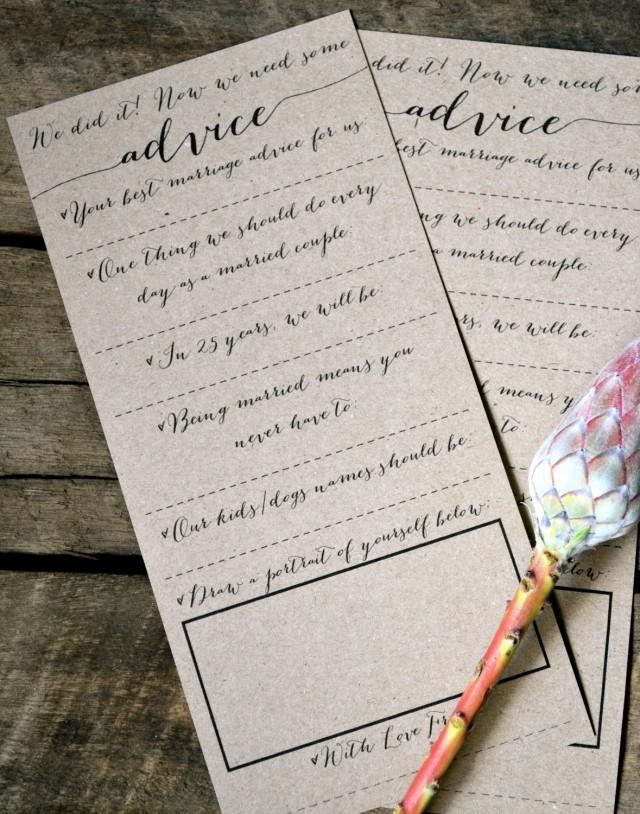 We did it! Now we need some
advice
Your best marriage advice for us:
One thing we should do every
day as a married couple:
In 25 years, we will be:
Being married means you
never have to:
Our kids/dogs names should be:
Draw a portrait of yourself below:
With Love
did it! Now we need
advice
best marriage advice for us
we should do every
a married couple:
we will be:
means
to: